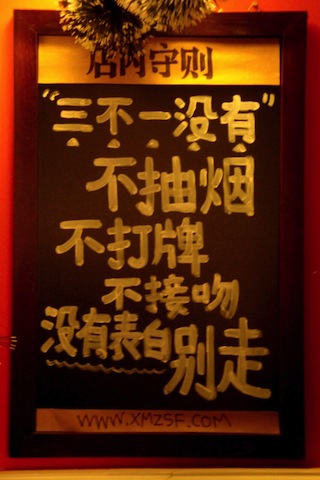 店内守则
"三不一没有"
不抽烟
不打牌
不接吻
没有表白别走
WWW.XMZSF.COM